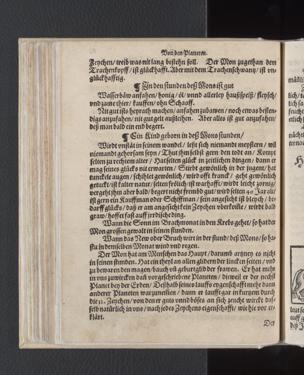 Von den Planeten.
Zeychen / weiß was nit lang bestehn soll. Der Mon zugethan dem
Trachenkopff / ist glückhafft. Aber mit dem Trachenschwantz / ist vn-
glückhafftig.
¶ In den stunden deß Mons ist gut
Wasserbäw anfahen / honig / öl / vnnd allerley haußspeiß / fleysch /
vnd zame thier / kauffen / ohn Schaaff.
Nit gut ists heyrath machen / anfahen zubawen / noch etwas besten-
digs anzufahen / nit gut gelt außleihen. Aber alles ist gut anzufahen /
deß man bald ein end begert.
¶ Ein Kind geborn in deß Mons stunden /
Wirdt vnstät in seinem wandel / leßt sich niemandt meystern / wil
niemandt gehorsam seyn / Thut jhm selbst gern den todt an / Kompt
selten zu rechtem alter / Hat selten glück in zeitlichen dingen / dann er
mag seines glücks nit erwarten / Stirbt gewönlich in der jugent / hat
dunckele augen / schihlet gewönlich / wird offt kranck / geht gewönlich
gebuckt / ist kalter natur / selten frölich / ist warhafft / wirdt leicht zornig /
vergeht jhm aber bald / fragt nit frembd gut / wird selten 40 Jar alt /
ist gern ein Kauffman oder Schiffman / sein angesicht ist bleych / be-
darff glücks / daß er am angesicht kein Zeychen vberkompt / wirdt bald
graw / hoffet fast auff irrdische ding.
Wann die Sonn im Brachmonat in den Krebs gehet / so hat der
Mon grossen gewalt in seinen stunden.
Wann das New oder Bruch wirt in der stund deß Mons / so ha-
stu in demselben Monat wind vnd regen.
Der Mon hat am Menschen das Haupt / darumb artzney es nicht
in seinen stunden. Hat ein theyl an allen glidern der lincken seiten / vnd
zu bewaren den magen / bauch vnd geburtglid der frawen. Er hat mehr
in vns zuwircken dañ vor geschribene Planeten / dieweil er der nechst
Planet bey der Erden / Deßhalb seines lauffs eygenschafft mehr dann
anderer Planeten warzunemen / dann er lauffe gar in kurtzem durch
die 12. Zeychen / von den er guts vnnd böses an sich zeucht wirckt daß-
selb natürlich in vns / nach jedes Zeychens eigenschafft / wie hie vor er-
klärt.
Der